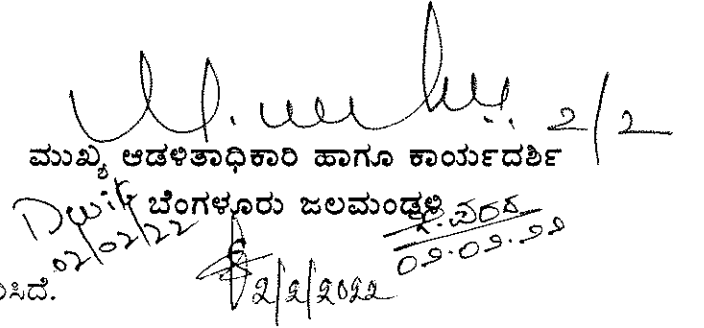 2/2
ಮುಖ್ಯ ಆಡಳಿತಾಧಿಕಾರಿ ಹಾಗೂ ಕಾರ್ಯದರ್ಶಿ
ಬೆಂಗಳೂರು ಜಲಮಂಡಳಿ
02/02/22
02.02.22
2/2/2022
ಸಿದೆ.